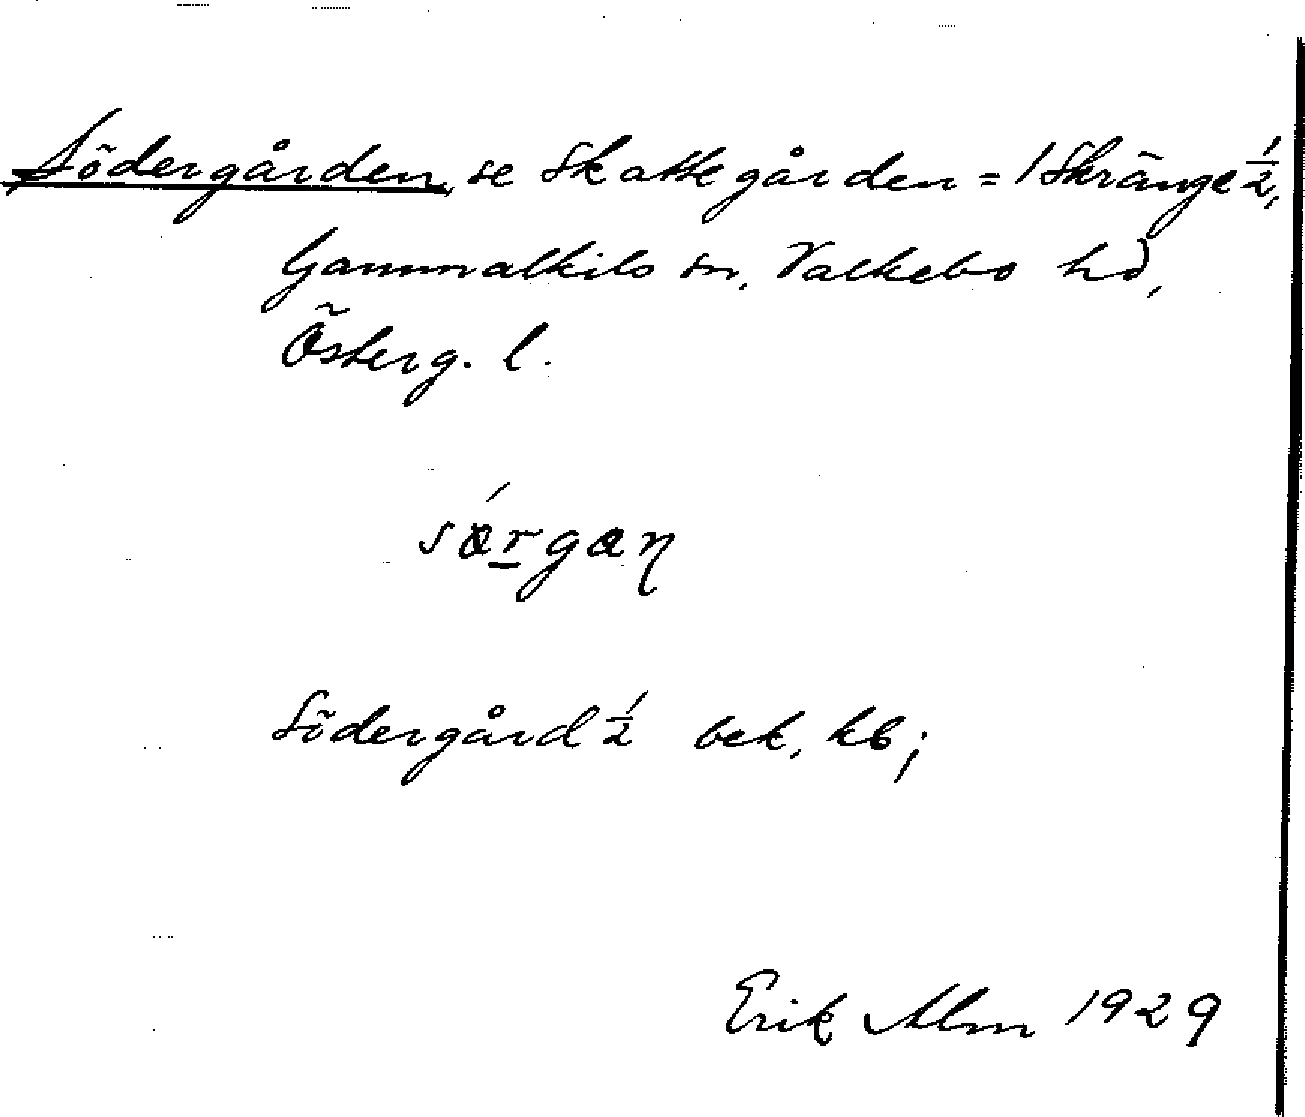 Södergården se Skattegården = 1 Skränge ½,
Gammalkils sn, Valkebo hd,
Österg. l.
sǿrgaη
Södergård ½ bek, kb;
Erik Alm 1929